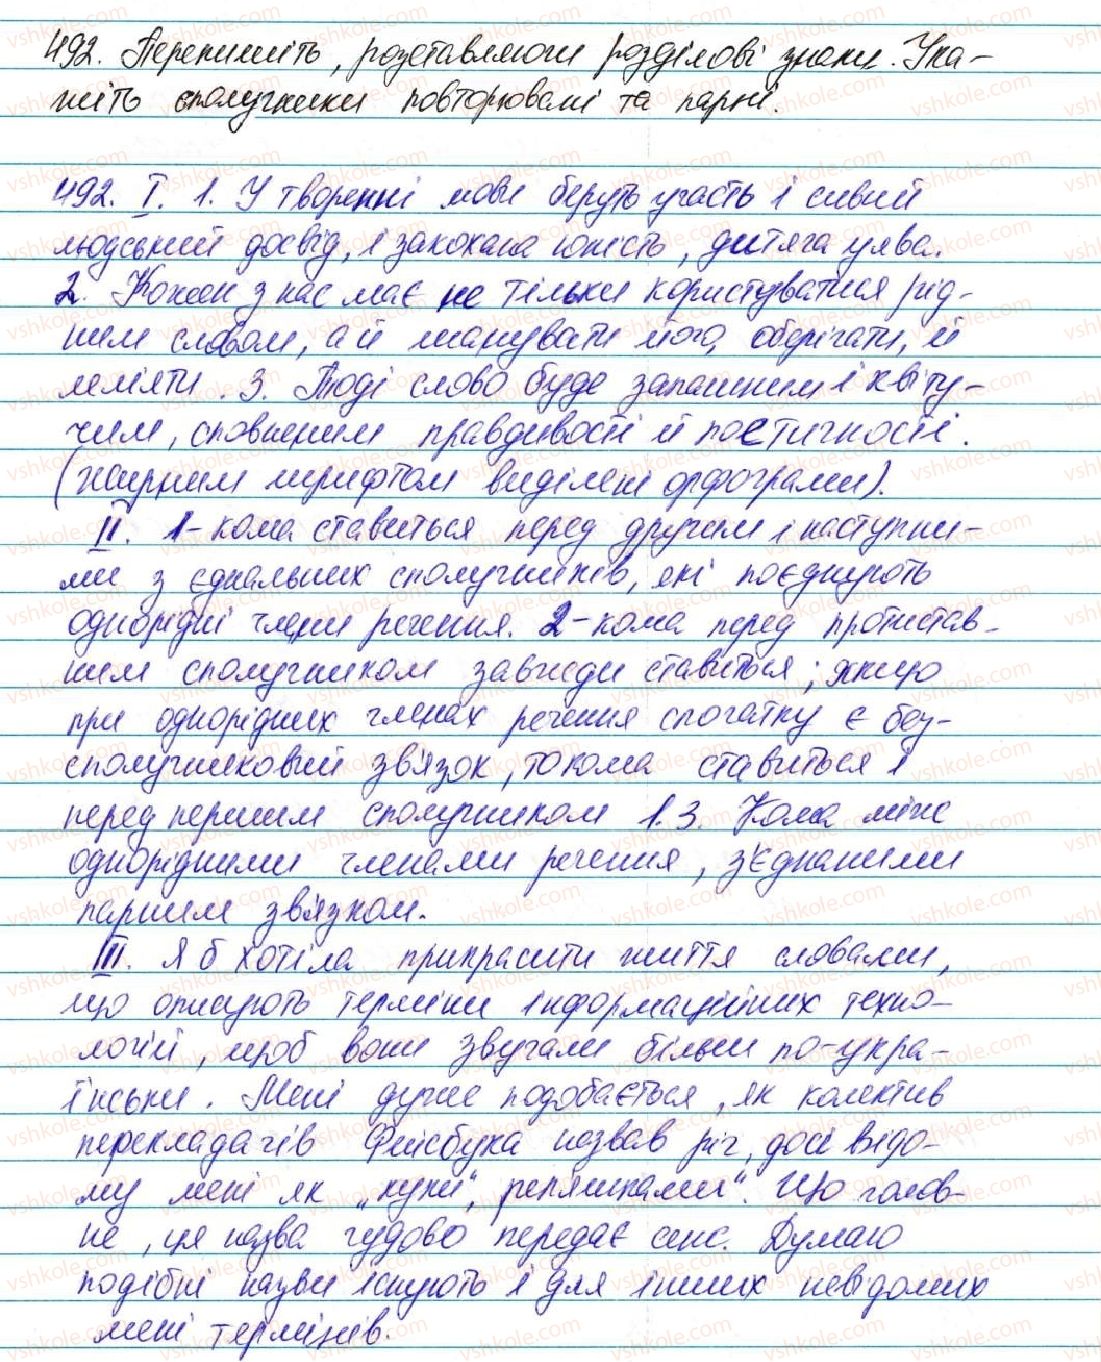 492. Перепишіть, розставляючи розділові знаки. Ука-
жіть сполучники повторювані та парні.
492. І. 1. У творенні мови беруть участь і сивий
людський досвід, і закохана юність, дитяча уява.
2. Кожен з нас має не тільки користуватися рід-
ним словом, а й шанувати його, оберігати, й
леліяти. 3. Тоді слово буде запашним і квіту-
чим, сповненим правдивості й поетичності.
(жирним шрифтом виділені орфограми).
ІІ. 1-кома ставиться перед другим і наступни-
ми з єднальних сполучників, які поєднують
однорідні члени речення. 2-кома перед протистав-
ним сполучником завжди ставиться; якщо
при однорідних членах речення спочатку є без-
сполучниковий зв'язок, то кома ставиться і
перед першим сполучником 1.3. Кома між
однорідними членами речення, з'єднаними
парним зв'язком.
ІІІ. Я б хотіла прикрасити життя словами,
що описують терміни інформаційних техно-
логій, щоб вони звучали більш по-укра-
їнськи. Мені дуже подобається, як колектив
перекладачів Фейсбука назвав річ, досі відо-
му мені як „куки", реп'яшками". Що голов-
не, ця назва чудово передає сенс. Думаю
подібні назви існують і для інших невідомих
мені термінів.